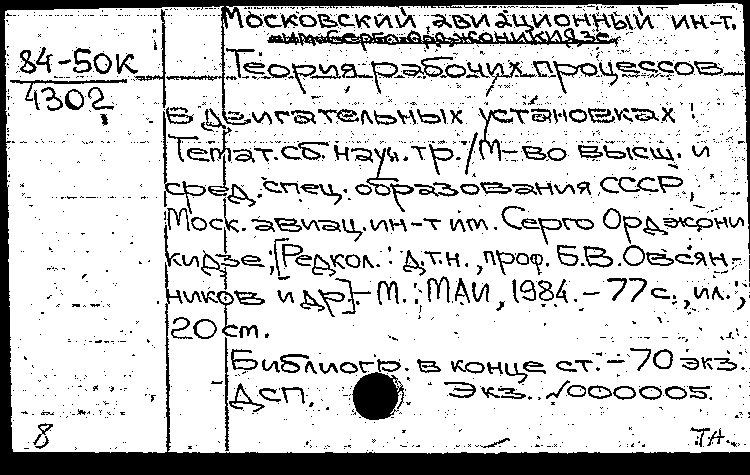 Московский авиационный ин-т.
им. Серго Орджоникидзе
84-50К
4302
Теория рабочих процессов
в двигательных установках :
Темат. сб. науч. тр. / М-во высш. и
сред. спец. образования СССР,
Моск. авиац. ин-т им. Серго Орджони
кидзе ; [Редкол. : д.т.н., проф. Б.В. Овсян-
ников и др]. - М. : МАИ, 1984. - 77 с., ил. ;
20 см.
Библиогр. в конце ст. - 70 экз.
ДСП. Экз. √000005.
8